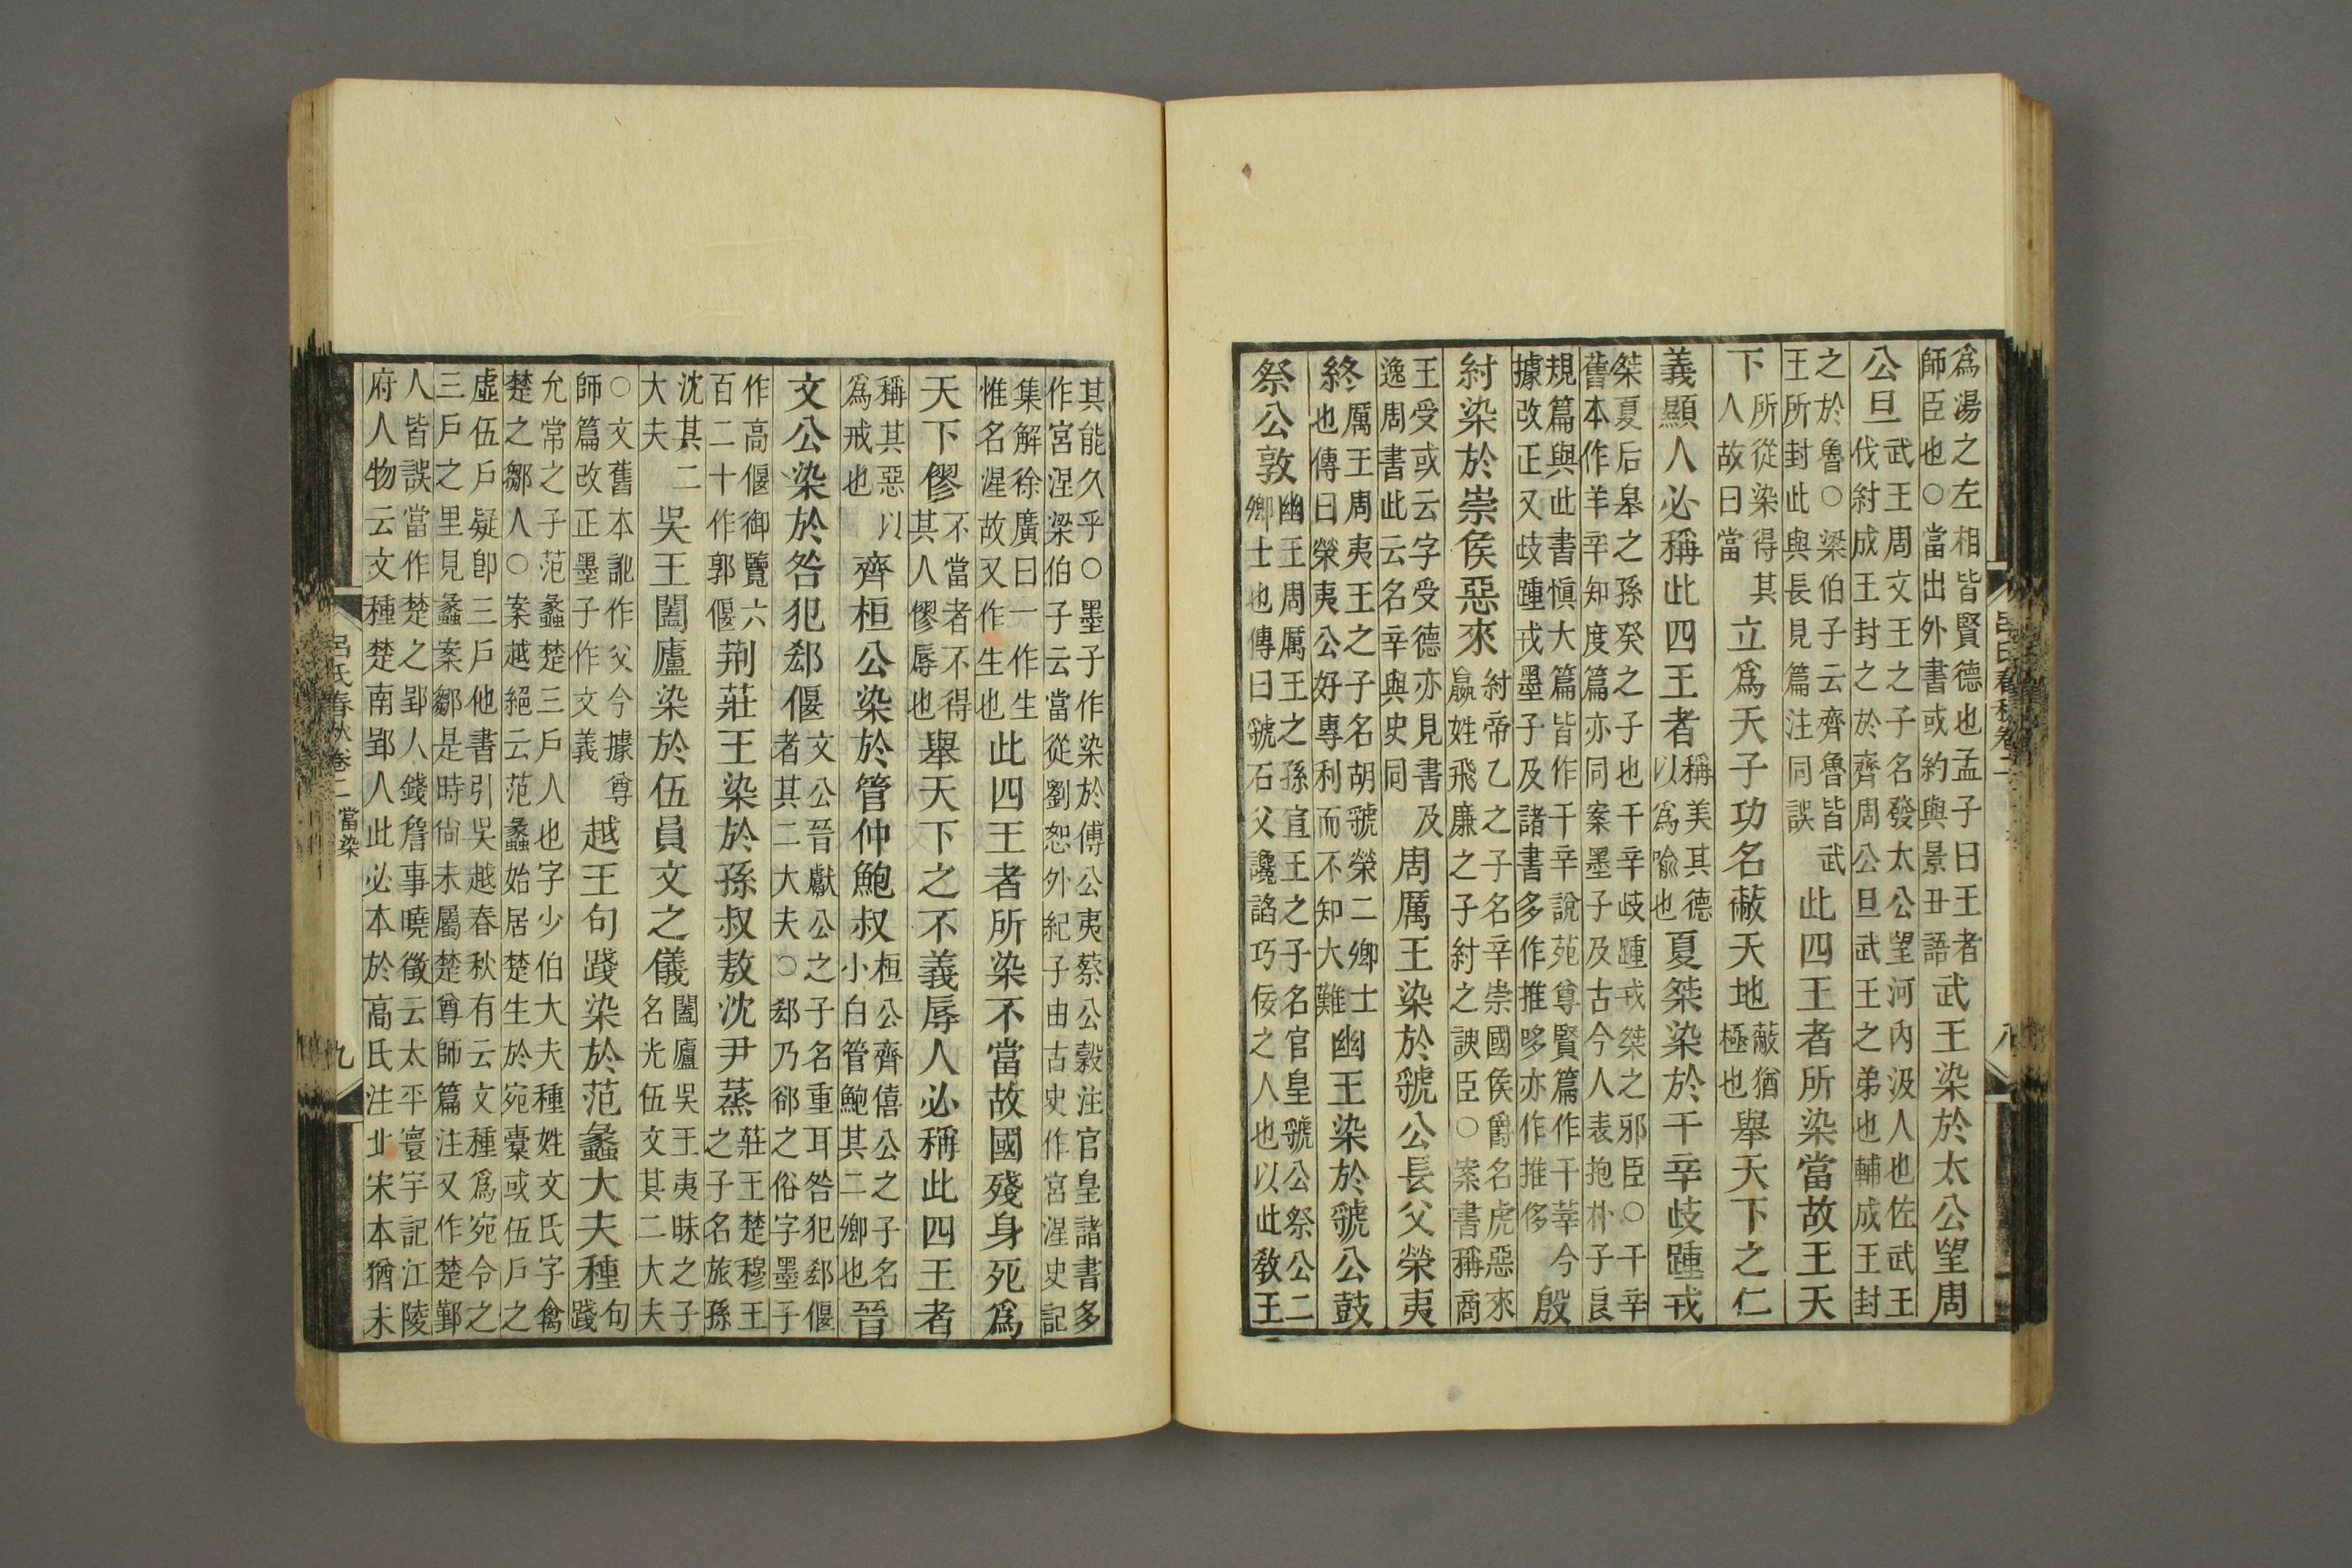 呂氏春秋卷二 八
為湯之左相皆賢德也孟子曰王者師臣也○當出外書或約與景丑語武王染於太公望周
公旦武王周文王之子名發太公望河內汲人也佐武王伐紂成王封之於齊周公旦武王之弟也輔成王封
之於魯○梁伯子云齊魯皆武王所封此與長見篇注同誤此四王者所染當故王天
下所從染得其人故曰當立為天子功名蔽天地蔽猶極也舉天下之仁
義顯人必稱此四王者稱美其德以為喻也夏桀染於干辛歧踵戎
桀夏后皋之孫癸之子也干辛歧踵戎桀之邪臣○干辛舊本作羊辛知度篇亦同案墨子及古今人表抱朴子良
規篇與此書慎大篇皆作干辛說苑尊賢篇作干莘今據改正又歧踵戎墨子及諸書多作推哆亦作推侈殷
紂染於崇侯惡來紂帝乙之子名辛崇國侯爵名虎惡來嬴姓飛廉之子紂之諛臣○案書稱商
王受或云字受德亦見書及逸周書此云名辛與史同周厲王染於虢公長父榮夷
終厲王周夷王之子名胡虢榮二卿士也傳曰榮夷公好專利而不知大難幽王染於虢公鼓
祭公敦幽王周厲王之孫宣王之子名官皇虢公祭公二卿士也傳曰虢石父讒諂巧佞之人也以此教王
其能久乎○墨子作染於傅公夷蔡公穀注官皇諸書多作宮涅梁伯子云當從劉恕外紀子由古史作宮湦史記
集解徐廣曰一作生惟名湦故又作生也此四王者所染不當故國殘身死為
天下僇不當者不得其人僇辱也舉天下之不義辱人必稱此四王者
稱其惡以為戒也齊桓公染於管仲鮑叔桓公齊僖公之子名小白管鮑其二卿也晉
文公染於咎犯郄偃文公晉獻公之子名重耳咎犯郄偃者其二大夫○郄乃郤之俗字墨子
作高偃御覽六百二十作郭偃荊莊王染於孫叔敖沈尹蒸莊王楚穆王之子名旅孫
沈其二大夫吳王闔廬染於伍員文之儀闔廬吳王夷昧之子名光伍文其二大夫
○文舊本訛作父今據尊師篇改正墨子作文義越王句踐染於范蠡大夫種句踐
允常之子范蠡楚三戶人也字少伯大夫種姓文氏字禽楚之鄒人○案越絕云范蠡始居楚生於宛橐或伍戶之
虛伍戶疑卽三戶他書引吳越春秋有云文種為宛令之三戶之里見蠡案鄒是時尙未屬楚尊師篇注又作楚鄞
人皆誤當作楚之郢人錢詹事曉徵云太平寰宇記江陵府人物云文種楚南郢人此必本於高氏注北宋本猶未
呂氏春秋卷二 當染 九